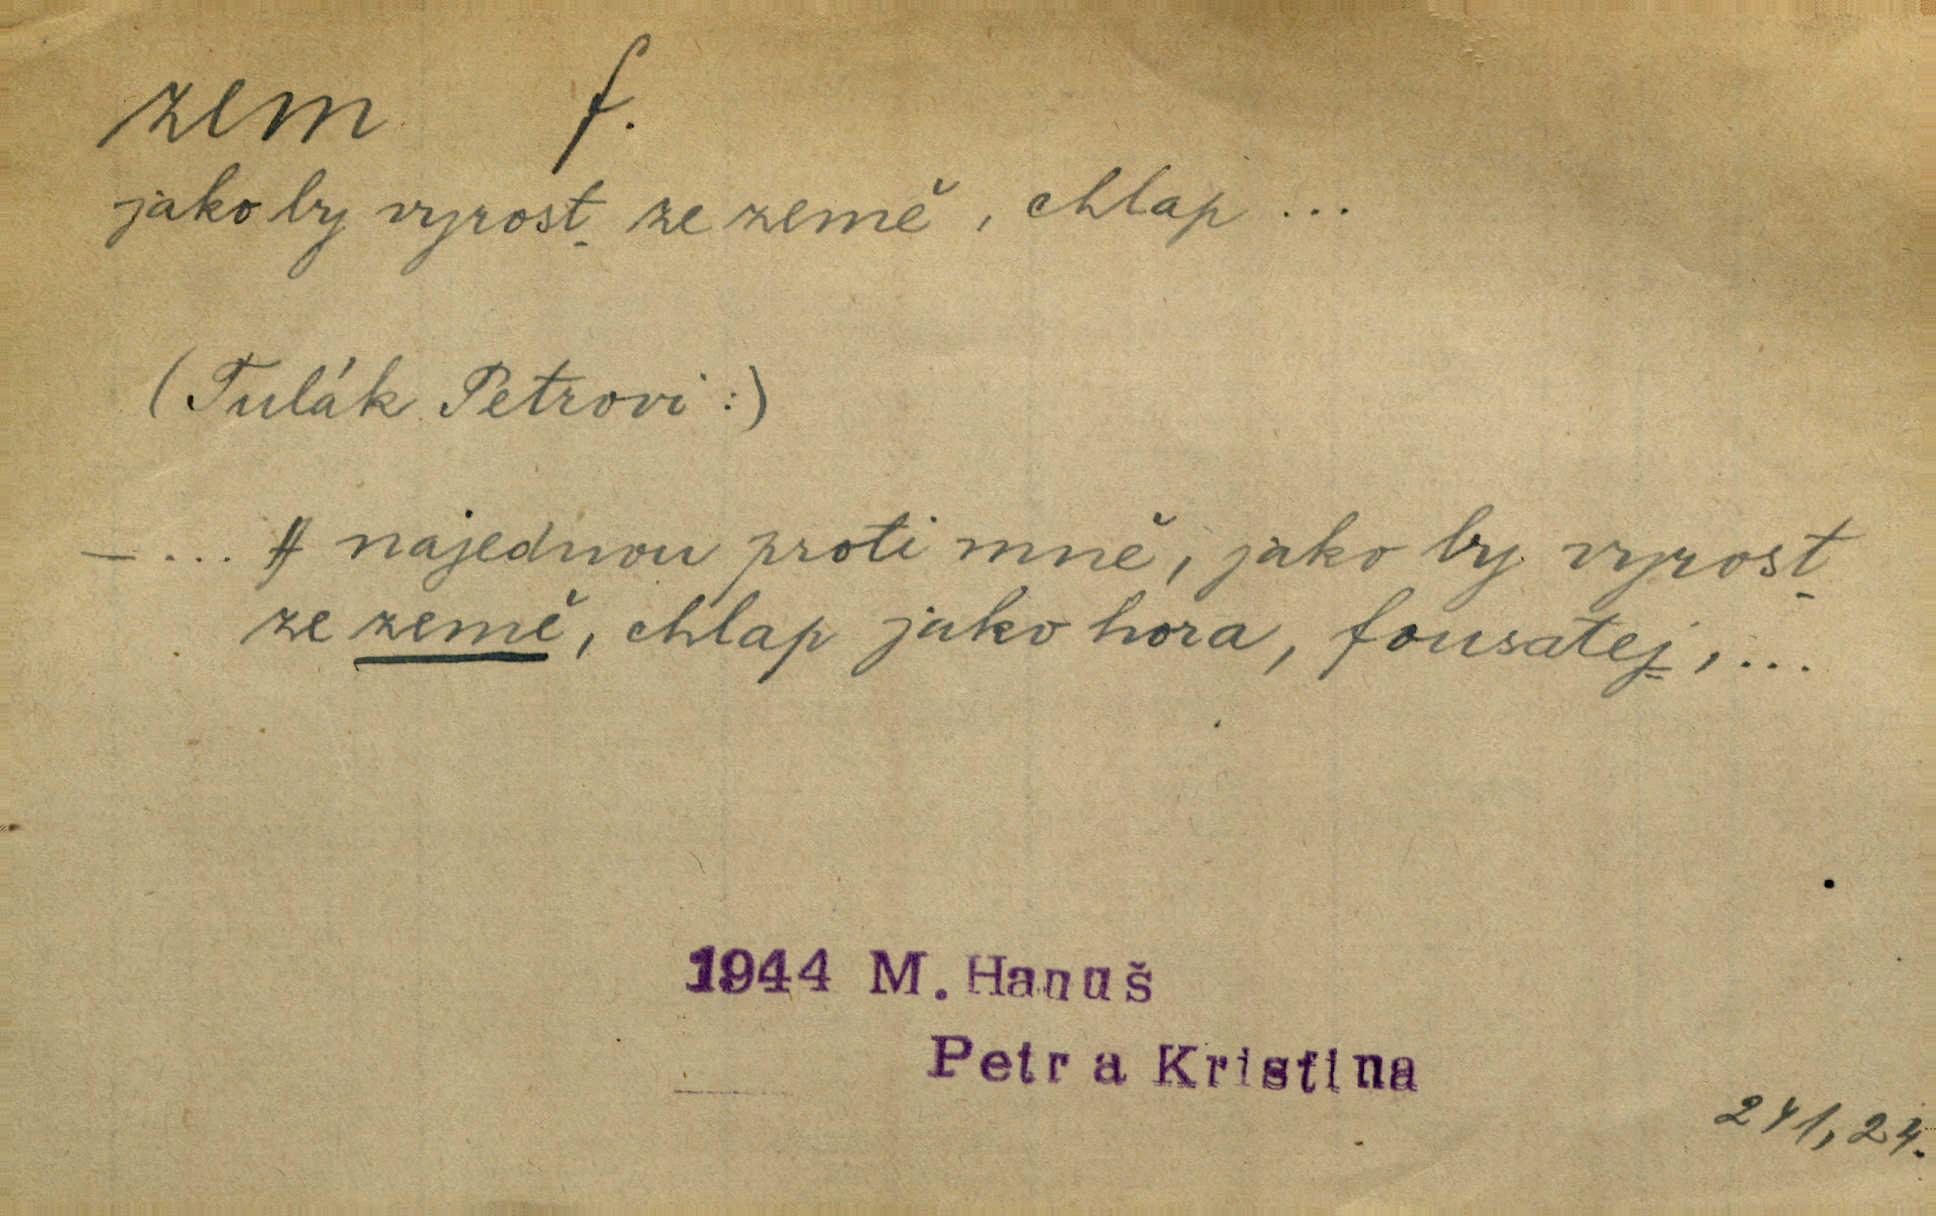 zem f.
jako by vyrost ze země, chlap ...
(Tulák Petrovi:)
– ... A najednou proti mně, jako by vyrost
ze země, chlap jako hora, fousatej, ...
1944 M. Hanuš
Petr a Kristina
241, 24.